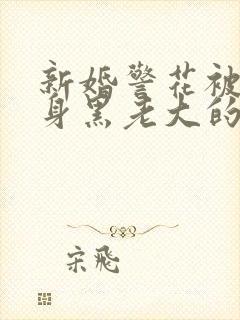 新婚警花被
身黑老大的
宋飛